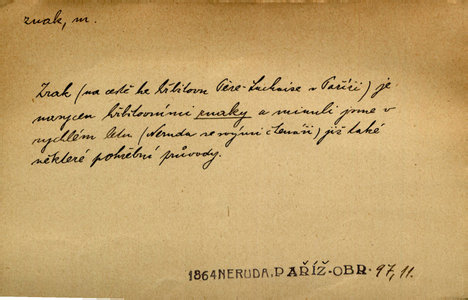 znak, m.
Zrak (na cestě ke hřbitovu Père-Lachaise v Paříži) je
nasycen hřbitovními znaky a minuli jsme v
rychlém letu (Neruda se svými čtenáři) již také
některé pohřební průvody.
1864 NERUDA, PAŘÍŽ-OBR. 97, 11.